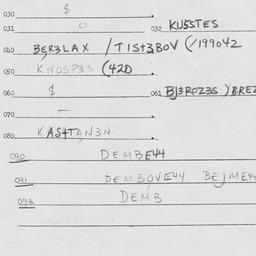 030 $
031 O 032 KUSSTES
040 BERELAX / TIST3BOV (/199042
050 KNOSP3S (42D
060 $ 061 BJ3ROZ3S ) BREZ
070 –
080 KASTTAN3N
090 DEMBE44
091 DEMBOVE44 BEJME44
092 DEMB